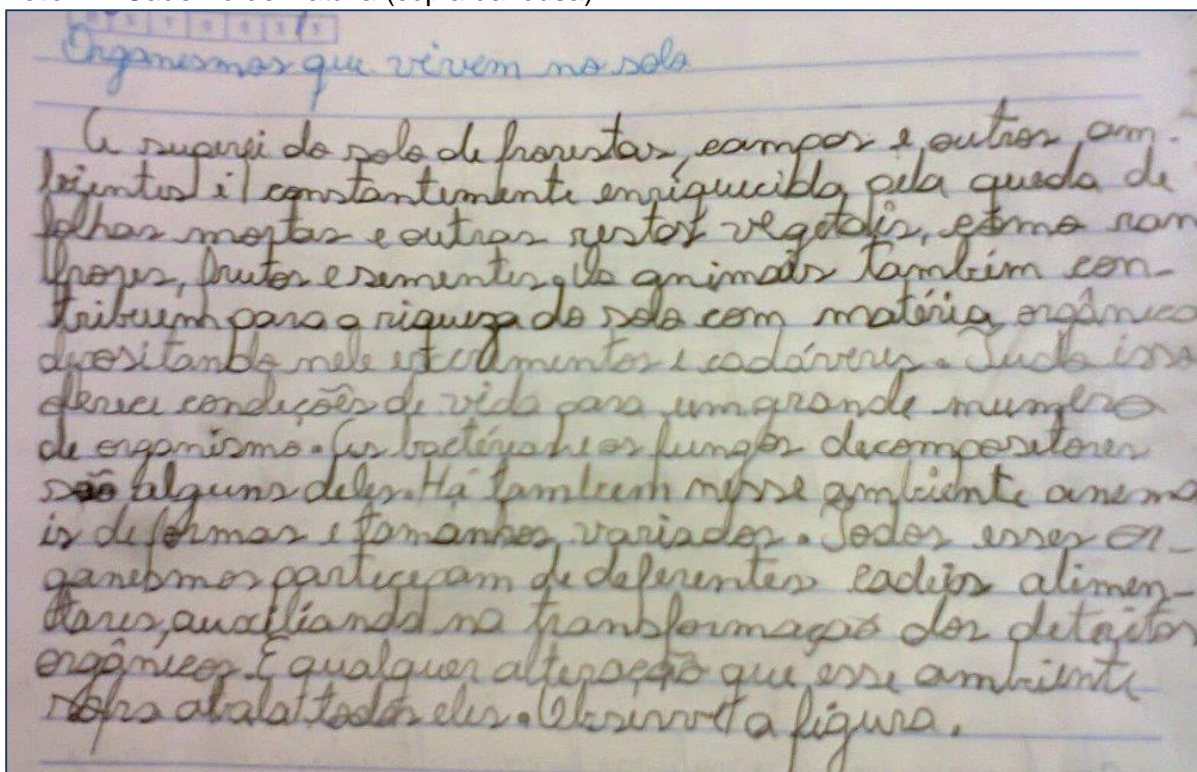 Organesmos que vivem no solo
A superfi do solo de frorestas, campos e outros am-
bientes é constantemente enriquecido pela queda de
folhas mortas e outras restos vegetais, como ran
frores, frutos e sementes, Os animais também con-
tribuem para a riqueza do solo com matéria orgânica
depositando nele excrementos e cadáveres. Tudo isso
oferece condições de vida para um grande numero
de organismo. As bactérias e os fungos decompositores
são alguns deles. Há tambem nesse ambiente anema
is de formas e tamanhos variados. Todos esses or-
ganesmos partecipam de deferentes cadeias alimen-
tares, auxiliando na transformação dos detritos
orgânicos. E qualquer alteração que esse ambiente
sofra abala todos eles. Observe a figura.